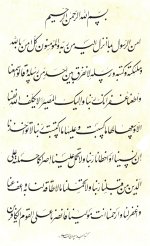 بسم الله الرحمن الرحيم
آمن الرسول بما انزل اليه من ربه والمؤمنون كل آمن بالله
وملئكته وكتبه ورسله لا نفرق بين احد من رسله وقالوا سمعنا
واطعنا غفرانك ربنا واليك المصير لا يكلف الله نفسا
الا وسعها لها ما كسبت وعليها ما اكتسبت ربنا لا تؤاخذنا
ان نسينا او اخطأنا ربنا ولا تحمل علينا اصرا كما حملته على
الذين من قبلنا ربنا ولا تحملنا ما لا طاقة لنا به واعف عنا
واغفر لنا وارحمنا انت مولينا فانصرنا على القوم الكافرين